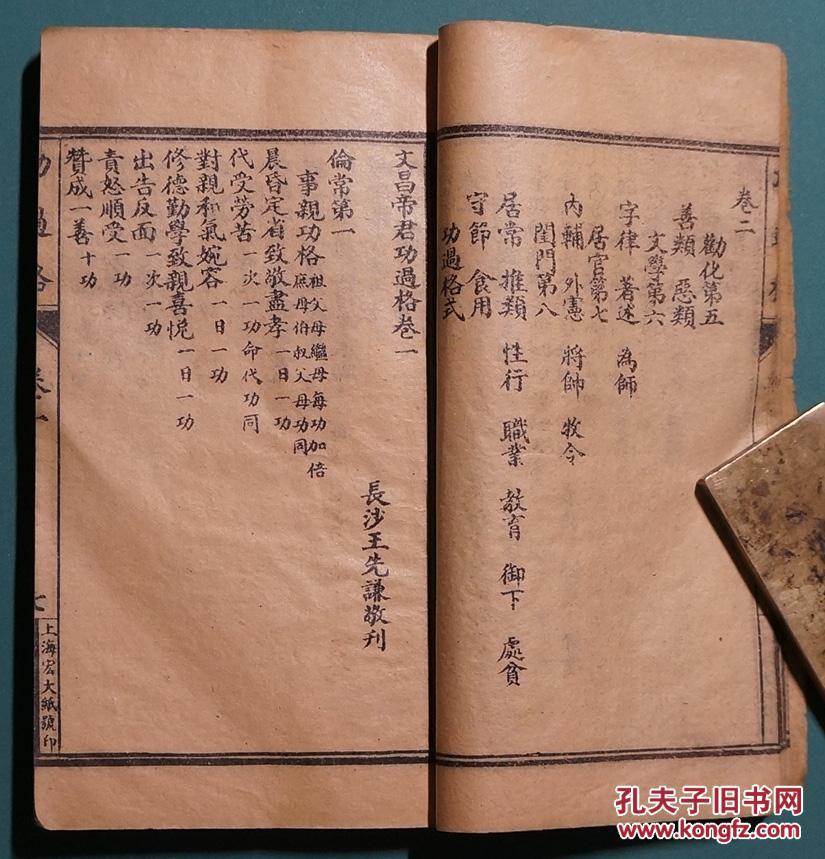 卷二
勸化第五
善類 惡類
文學第六
字律 著述 為師
居官第七
內輔 外憲 將帥 牧令
閨門第八
居常 推類 性行 職業 教育 御下 處貧
守節 食用
功過格式
文昌帝君功過格卷一
長沙王先謙敬刊
倫常第一
事親功格 祖父母繼母每功加倍
庶母伯叔父母功同
晨昏定省致敬盡孝 一日一功
代受勞苦 一次一功命代功同
對親和氣婉容 一日一功
修德勤學致親喜悅 一日一功
出告反面 一次一功
責怒順受 一功
贊成一善 十功
功過格
卷一
七
上海宏大紙號印
孔夫子旧书网
www.kongfz.com